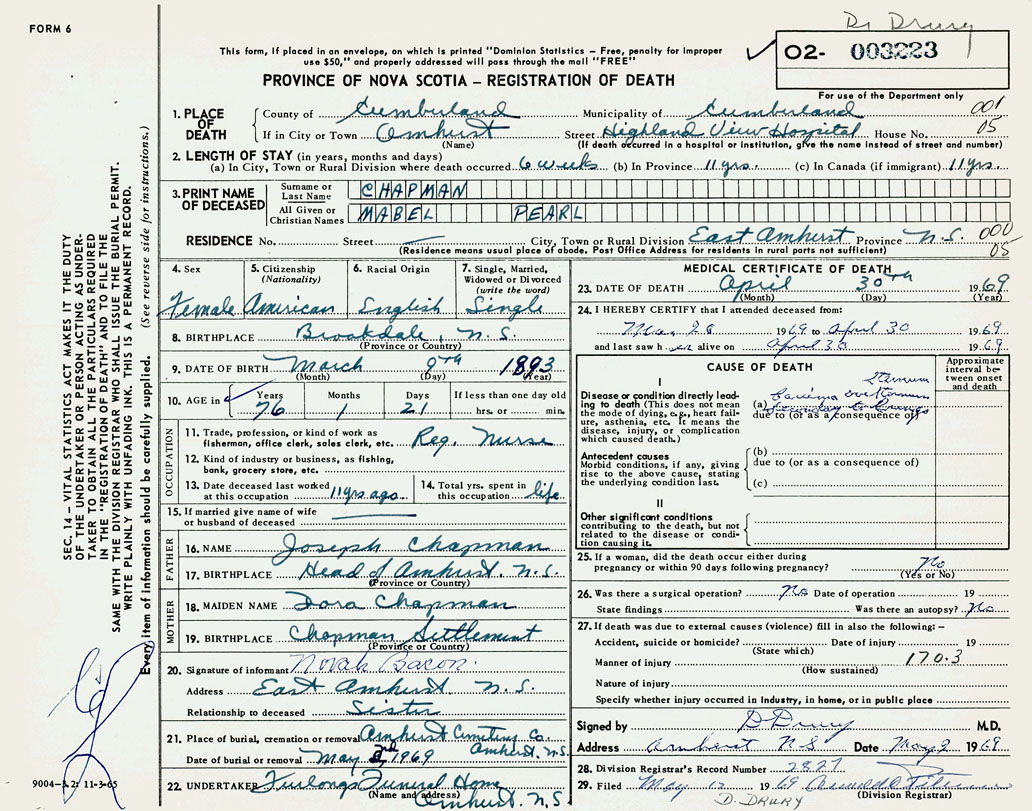 FORM 6
Dr Drury
This form, if placed in an envelope, on which is printed "Dominion Statistics – Free, penalty for improper
use $50," and properly addressed will pass through the mail "FREE"
PROVINCE OF NOVA SCOTIA – REGISTRATION OF DEATH
O2- 003223
For use of the Department only
001
05
1. PLACE OF DEATH
County of Cumberland Municipality of Cumberland
If in City or Town Amherst Street Highland View Hospital House No.
(Name) (If death occurred in a hospital or institution, give the name instead of street and number)
2. LENGTH OF STAY (in years, months and days)
(a) In City, Town or Rural Division where death occurred 6 weeks (b) In Province 11 yrs. (c) In Canada (if immigrant) 11 yrs.
3. PRINT NAME OF DECEASED
Surname or Last Name CHAPMAN
All Given or Christian Names MABEL PEARL
RESIDENCE No. Street City, Town or Rural Division East Amherst Province N.S. 000
05
(Residence means usual place of abode. Post Office Address for residents in rural parts not sufficient)
4. Sex
Female
5. Citizenship
(Nationality)
American
6. Racial Origin
English
7. Single, Married, Widowed or Divorced
(write the word)
Single
8. BIRTHPLACE Brookdale, N.S.
(Province or Country)
9. DATE OF BIRTH March 9th 1893
(Month) (Day) (Year)
10. AGE in Years Months Days If less than one day old
76 1 21 hrs. or min.
OCCUPATION
11. Trade, profession, or kind of work as fisherman, office clerk, sales clerk, etc. Reg. Nurse
12. Kind of industry or business, as fishing, bank, grocery store, etc.
13. Date deceased last worked at this occupation 11 yrs ago
14. Total yrs. spent in this occupation life
15. If married give name of wife or husband of deceased
FATHER
16. NAME Joseph Chapman
17. BIRTHPLACE Head of Amherst, N.S.
(Province or Country)
MOTHER
18. MAIDEN NAME Dora Chapman
19. BIRTHPLACE Chapman Settlement
(Province or Country)
20. Signature of informant Novah Bacon.
Address East Amherst N.S.
Relationship to deceased Sister
21. Place of burial, cremation or removal Amherst Cemetery Co.
Amherst, N.S.
Date of burial or removal May 2nd, 1969
22. UNDERTAKER Furlong Funeral Home
(Name and address) Amherst, N.S
MEDICAL CERTIFICATE OF DEATH
23. DATE OF DEATH April 30th 1969
(Month) (Day) (Year)
24. I HEREBY CERTIFY that I attended deceased from:
Mar 28 1969 to April 30 1969
and last saw her alive on April 30 1969
CAUSE OF DEATH
Approximate interval between onset and death
I
Disease or condition directly leading to death (This does not mean the mode of dying, e.g., heart failure, asthenia, etc. It means the disease, injury, or complication which caused death.)
sternum
(a)
due to (or as a consequence of)
Antecedent causes
Morbid conditions, if any, giving rise to the above cause, stating the underlying condition last.
(b)
due to (or as a consequence of)
(c)
II
Other significant conditions contributing to the death, but not related to the disease or condition causing it.
25. If a woman, did the death occur either during pregnancy or within 90 days following pregnancy? No
(Yes or No)
26. Was there a surgical operation? No Date of operation 19
State findings Was there an autopsy? No
27. If death was due to external causes (violence) fill in also the following:–
Accident, suicide or homicide? Date of injury 19
(State which)
Manner of injury 170.3
(How sustained)
Nature of injury
Specify whether injury occurred in Industry, in home, or in public place
Signed by D Drury M.D.
Address Amherst NS Date May 2 1969
28. Division Registrar's Record Number 2827
29. Filed May 12 1969
(Division Registrar)
D. DRURY
SEC. 14 – VITAL STATISTICS ACT MAKES IT THE DUTY
OF THE UNDERTAKER OR PERSON ACTING AS UNDER-
TAKER TO OBTAIN ALL THE PARTICULARS REQUIRED
IN THE "REGISTRATION OF DEATH" AND TO FILE THE
SAME WITH THE DIVISION REGISTRAR WHO SHALL ISSUE THE BURIAL PERMIT.
WRITE PLAINLY WITH UNFADING INK. THIS IS A PERMANENT RECORD.
Every item of information should be carefully supplied. (See reverse side for instructions.)
9004–3.2: 11-3-65